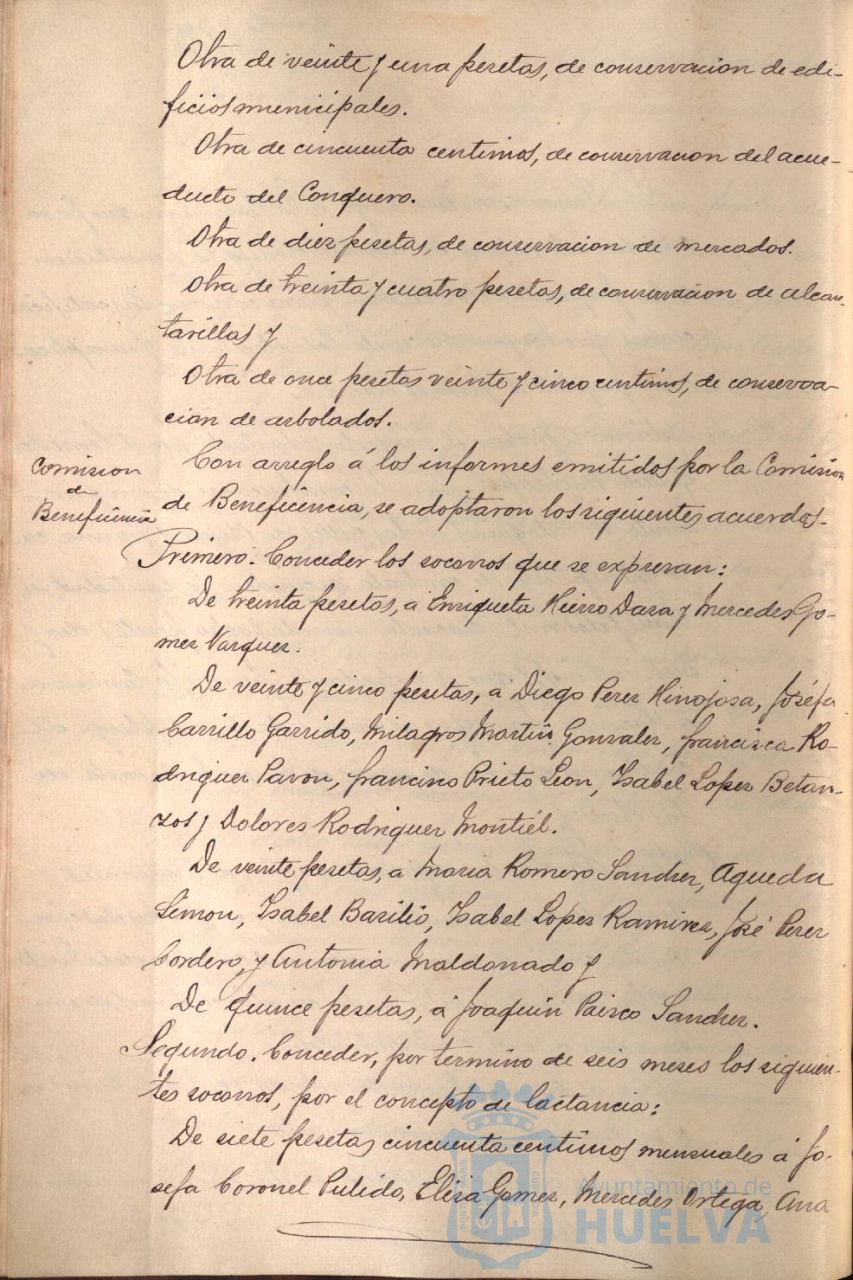 Otra de veinte y una pesetas, de conservacion de edi-
ficios municipales.
Otra de cincuenta centimos, de conservacion del acue-
ducto del Conquero.
Otra de diez pesetas, de conservacion de mercados.
Otra de treinta y cuatro pesetas, de conservacion de alcan-
tarillas y
Otra de once pesetas veinte y cinco centimos, de conserva-
cion de arbolados.
Comision
de
Beneficencia
Con arreglo á los informes emitidos por la Comision
de Beneficencia, se adoptaron los siguientes acuerdos.
Primero. Conceder los socorros que se expresan:
De treinta pesetas, a Enriqueta Hierro Daza y Mercedes Go-
mez Vazquez.
De veinte y cinco pesetas, a Diego Perez Hinojosa, Joséfa
Carrillo Garrido, Milagros Martin Gonzalez, francisca Ro-
driguez Pavon, francisco Prieto Leon, Isabel Lopez Betan-
zos y Dolores Rodriguez Montiél.
De veinte pesetas, a Maria Romero Sanchez, Agueda
Simon, Isabel Basilio, Isabel Lopez Ramirez, José Perez
Cordero, y Antonia Maldonado y
De quince pesetas, á Joaquin Sanchez.
Segundo. Conceder, por termino de seis meses los siguien-
tes socorros, por el concepto de lactancia:
De siete pesetas cincuenta centimos mensuales á Jo-
sefa Coronel Pulido, Elisa Gomez, Mercedes Ortega, Ana
Ayuntamiento de
HUELVA